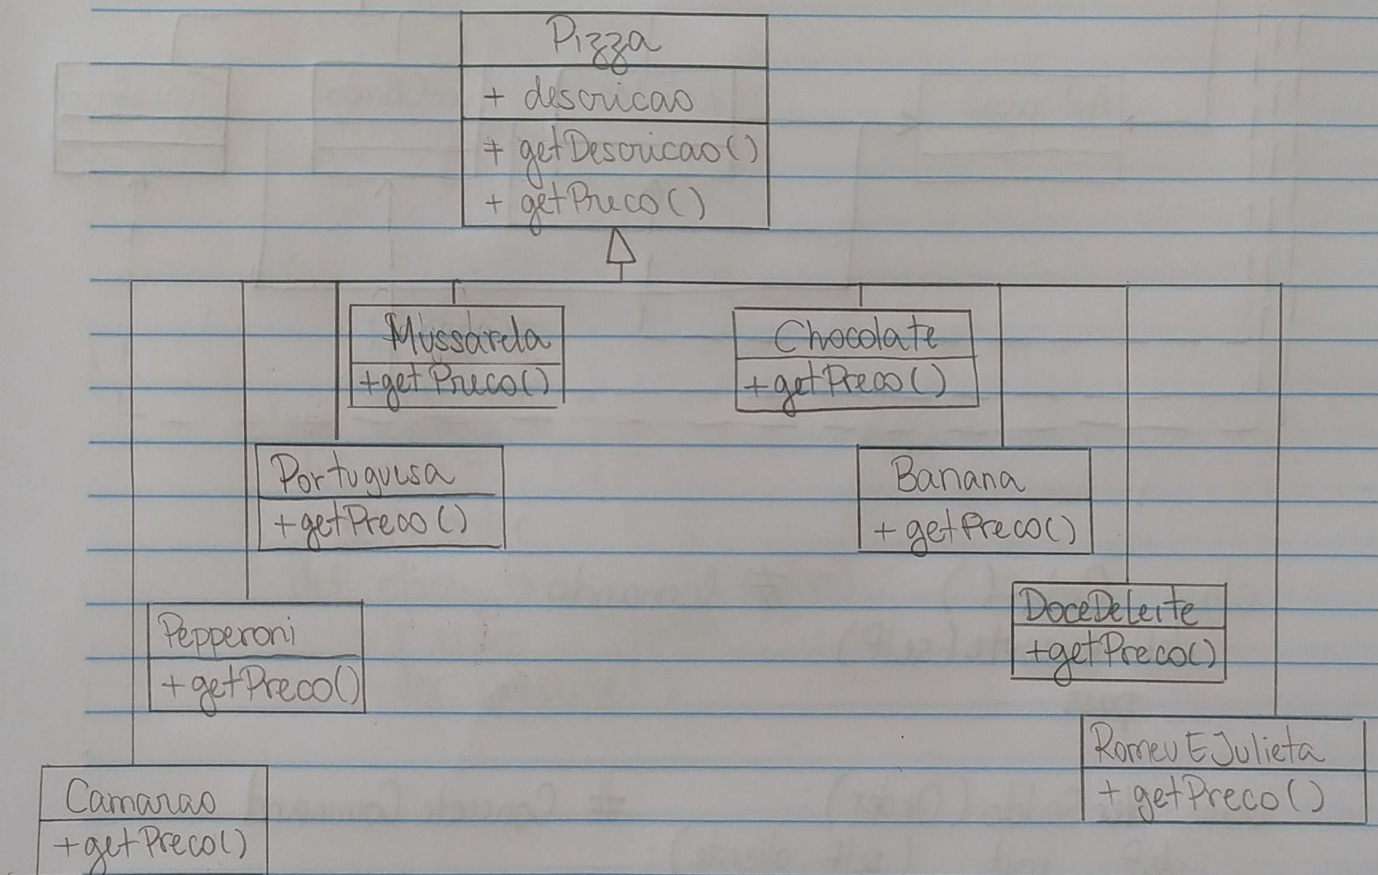 Pizza
+ descricao
+ getDescricao()
+ getPreco()
Mussarela
+getPreco()
Chocolate
+getPreco()
Portuguesa
+getPreco()
Banana
+getPreco()
Pepperoni
+getPreco()
DoceDeLeite
+getPreco()
RomeuEJulieta
+getPreco()
Camarao
+getPreco()